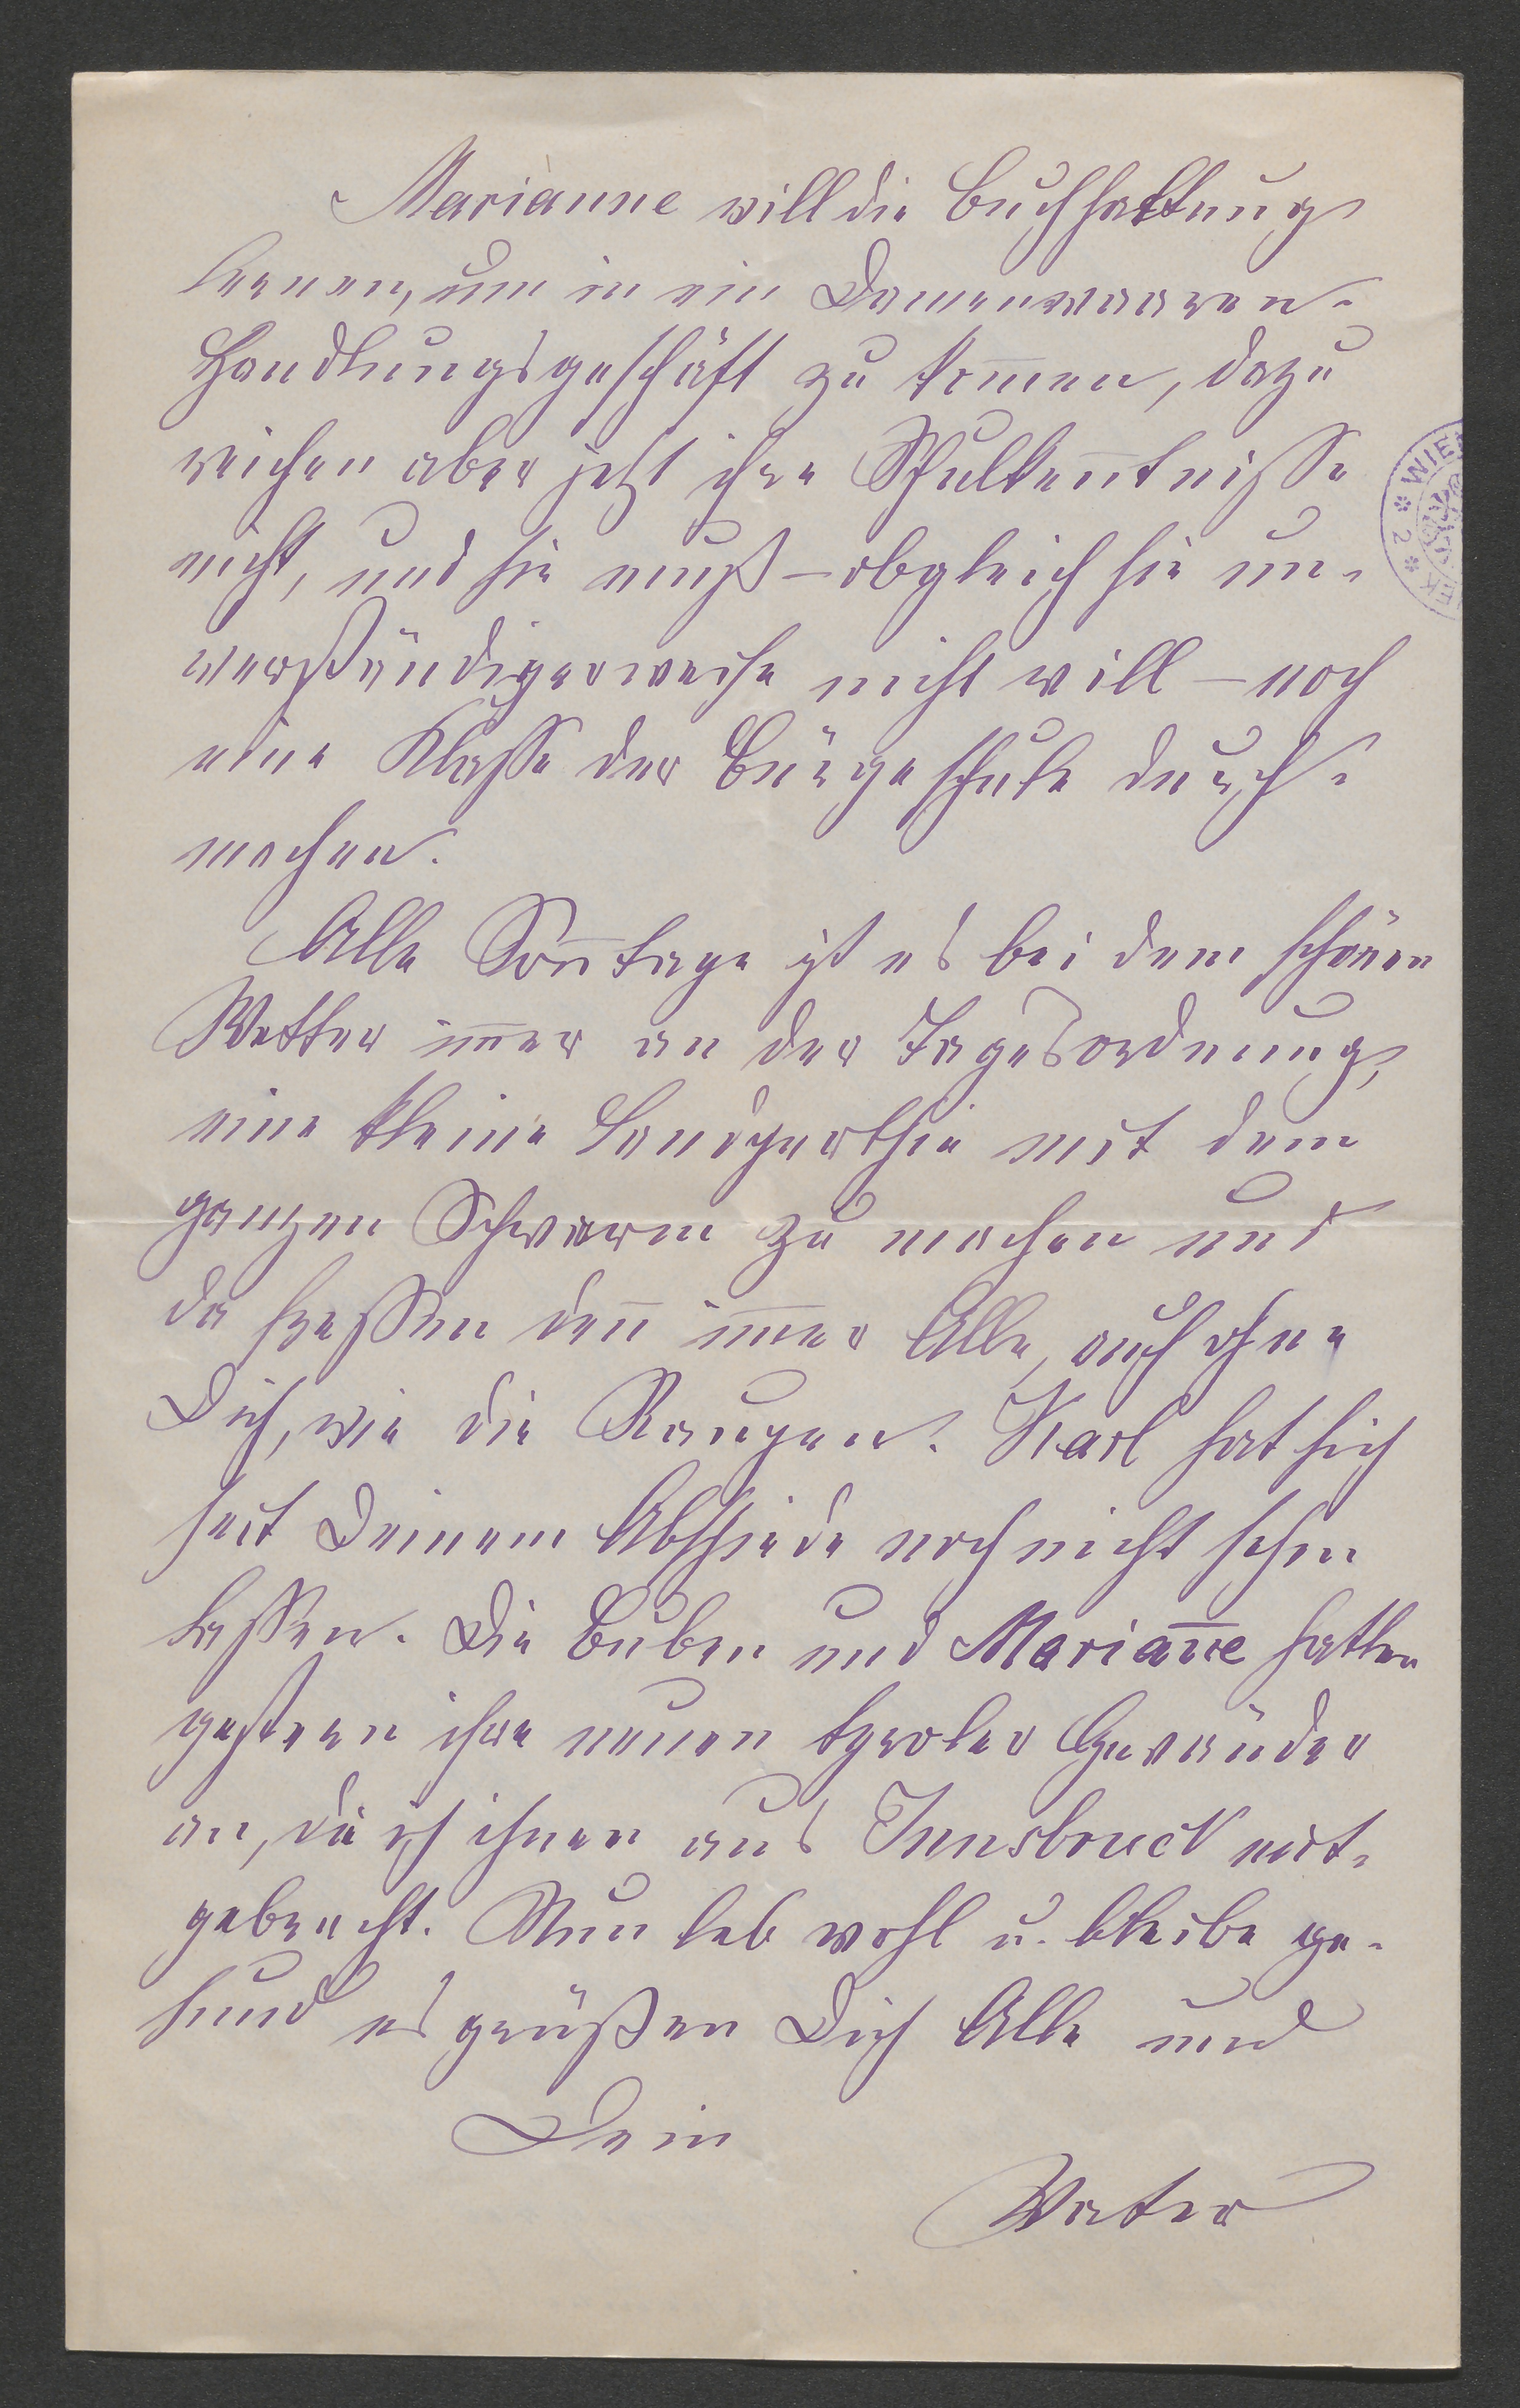 Marianne will die Buchhaltung
lernen, um in ein Damenwaaren-
Handlungsgeschäft zu kom̅en, dazu
reichen aber jetzt ihre Schulken̅tnisse
nicht, und sie muß – obgleich sie un-
verständigerweise nicht will – noch
eine Klasse der Bürgeschule durch-
machen.
Alle Son̅tage ist es bei dem schönen
Wetter im̅er an der Tagesordnung,
eine kleine Landparthie mit dem
ganzen Schwarm zu machen und
da fressen dan̅ im̅er Alle, auch ohne
Dich, wie die Raupen. Karl hat sich
seit Deinem Abschiede noch nicht sehen
lassen. Die Buben und Marian̅e hatten
gestern ihre neuen tyroler Gewänder
an, die ich ihnen aus Innsbruck mit-
gebracht. Nun leb wohl u. bleibe ge-
sund es grüßen Dich Alle und
Dein
Vater
WIE
2
EK